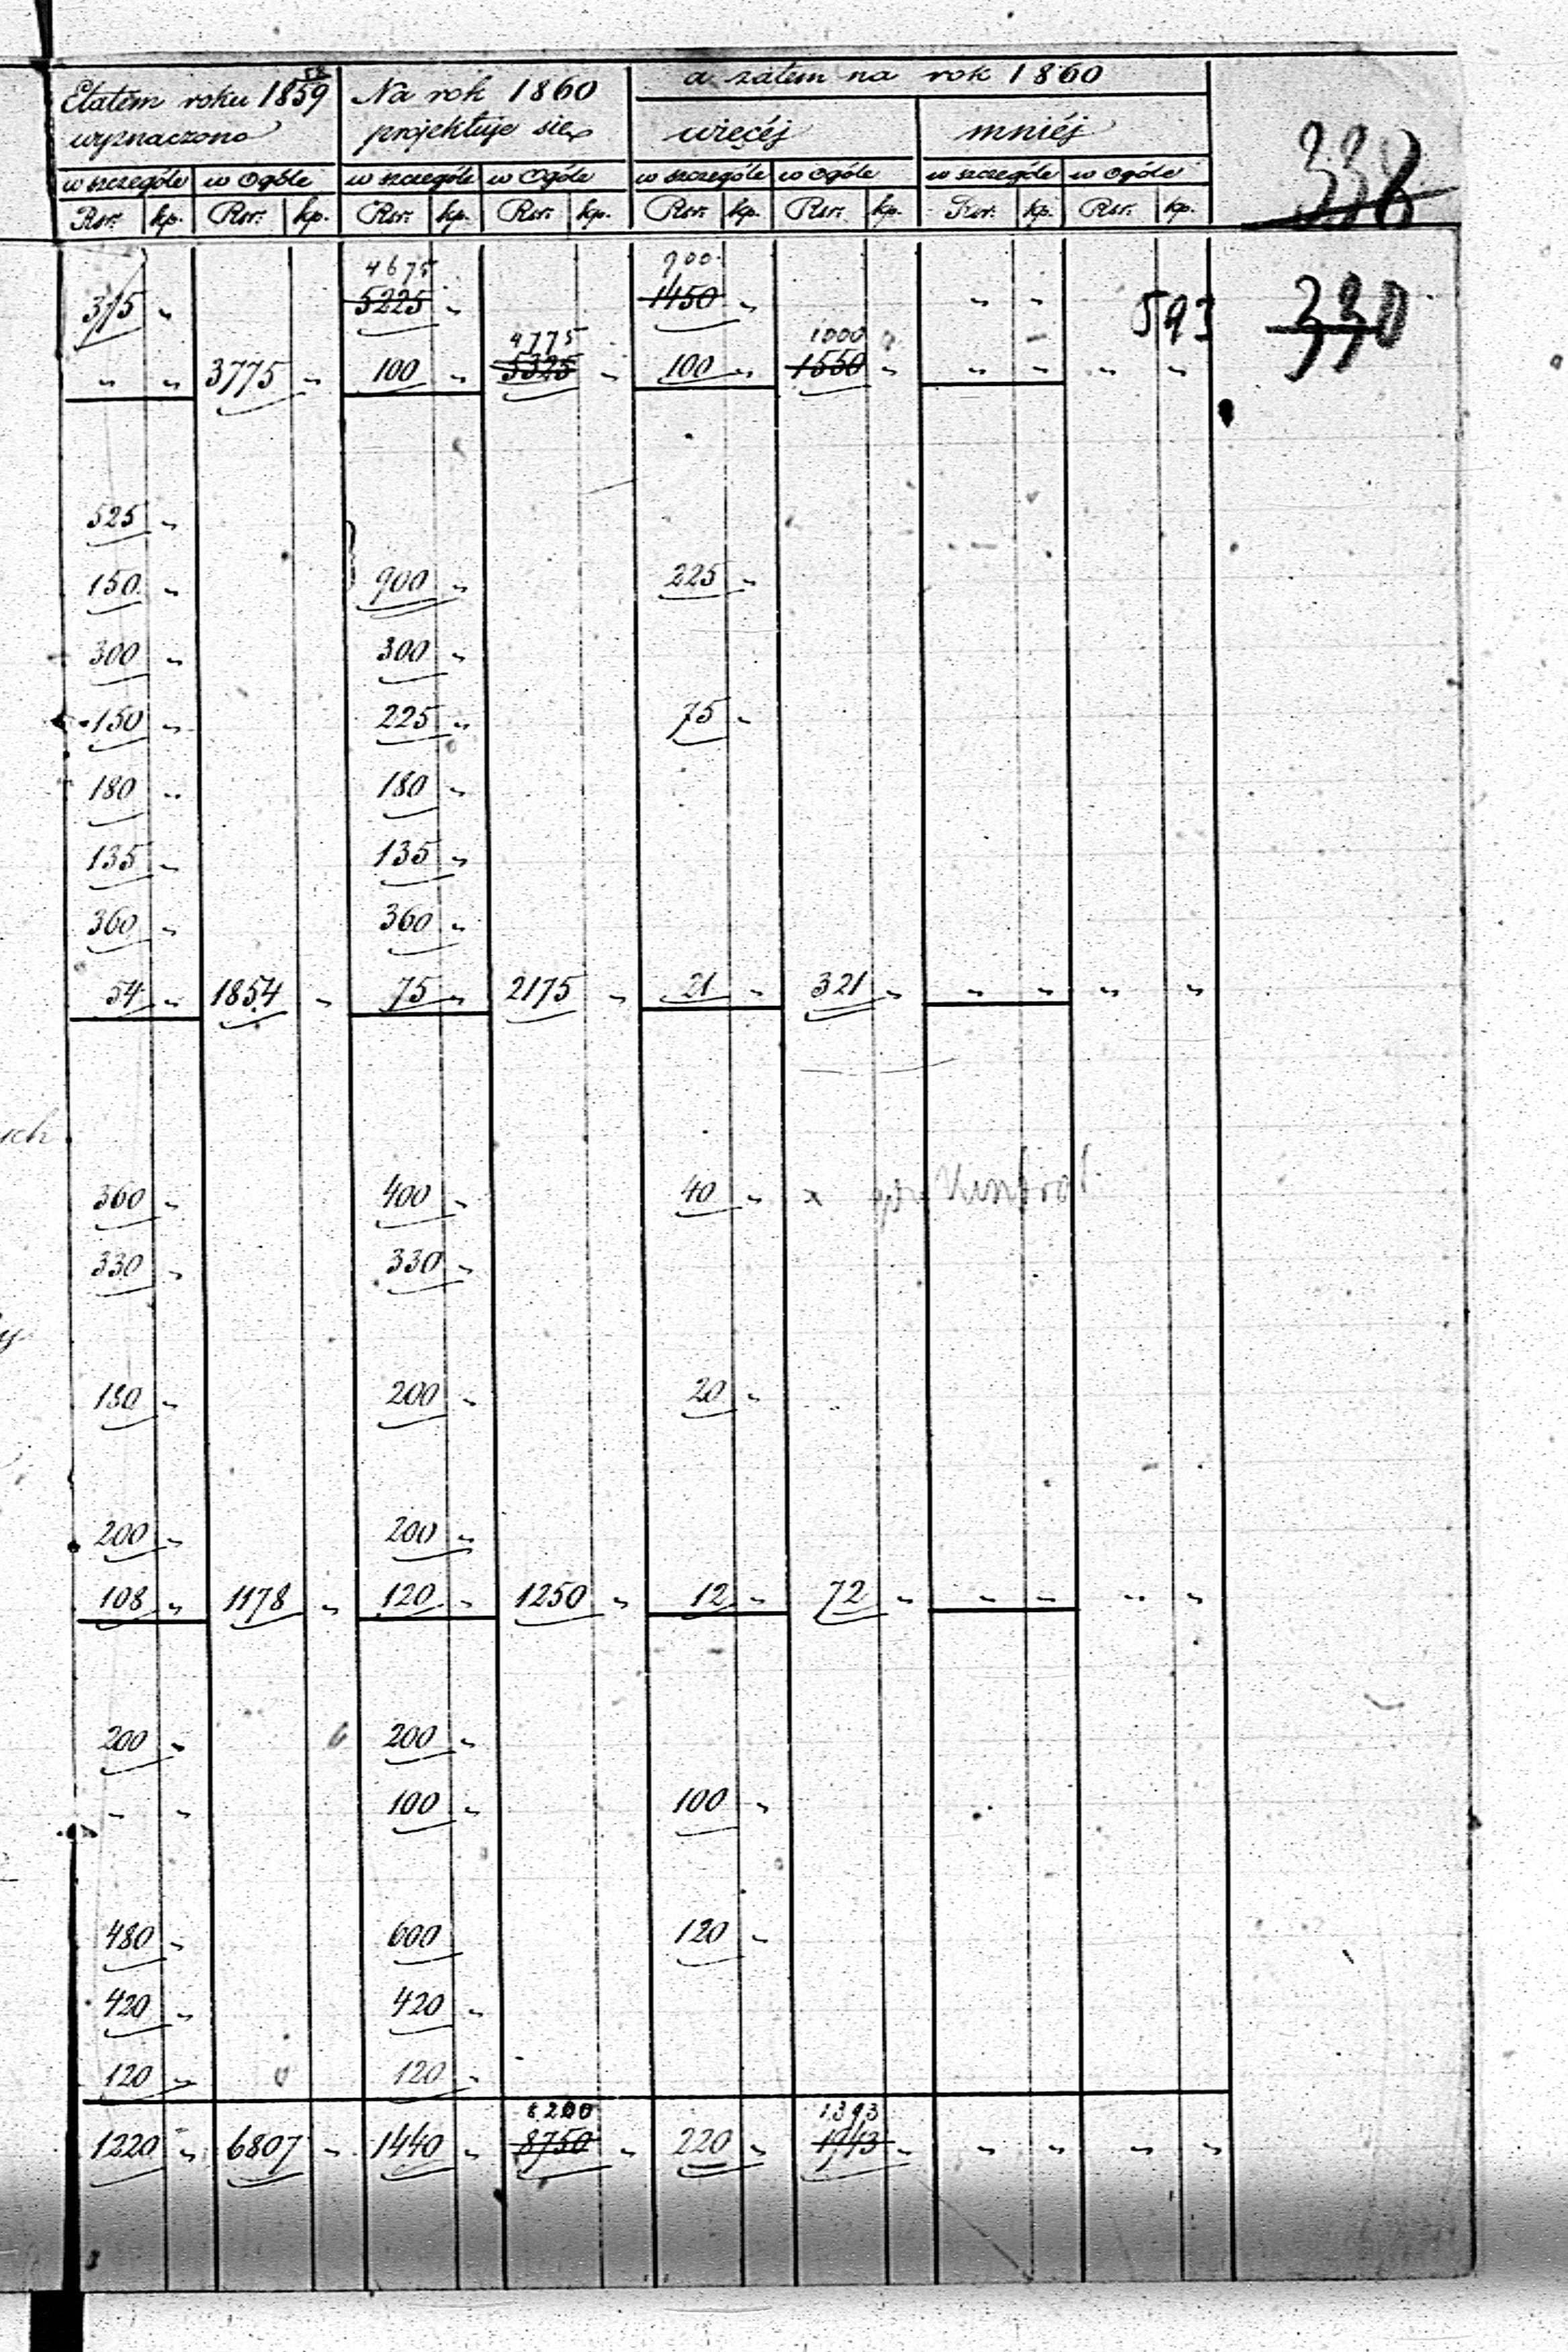 Etatem roku 1859 Na rok 1860 a zatem na rok 1860
58
wyznaczono projektuje się więcéj mniéj
338
w szczególe w Ogóle w szczególe w Ogóle w szczególe w Ogóle w szczególe w Ogóle
Rsr. kp. Rsr. kp. Rsr. kp. Rsr. kp. Rsr. kp. Rsr. kp. Rsr. kp. Rsr. kp.
4675 900
375 „ 5225 „ 1450 „ „ „ 593 330
4775 1000
„ „ 3775 „ 100 „ 5325 „ 100 „ 1550 „ „ „ „ „
525 „
150 „ 900 „ 225 „
300 „ 300 „
150 „ 225 „ 75 „
180 „ 180 „
135 „ 135 „
360 „ 360 „
54 „ 1854 „ 75 „ 2175 „ 21 „ 321 „ „ „ „ „
360 „ 400 „ 40 „ x
330 „ 330 „
180 „ 200 „ 20 „
200 „ 200 „
108 „ 1178 „ 120 „ 1250 „ 12 „ 72 „ „ „ „ „
200 „ 200 „
„ „ 100 „ 100 „
480 „ 600 120 „
420 „ 420 „
120 „ 120 „
8200 1393
1220 „ 6807 „ 1440 „ 8750 „ 220 „ 1943 „ „ „ „ „